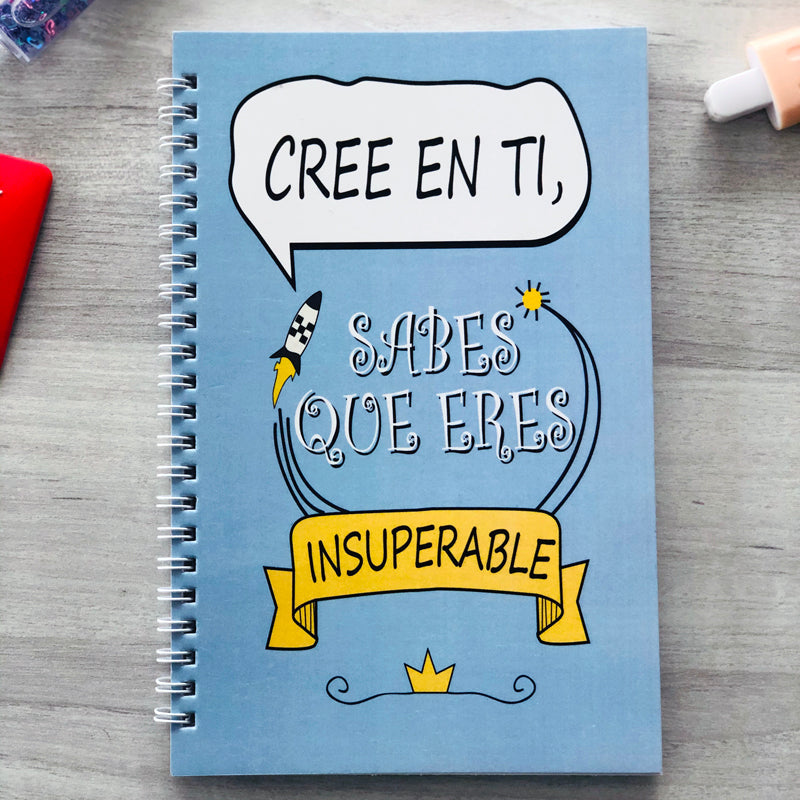 CREE EN TI,
SABES
QUE ERES
INSUPERABLE